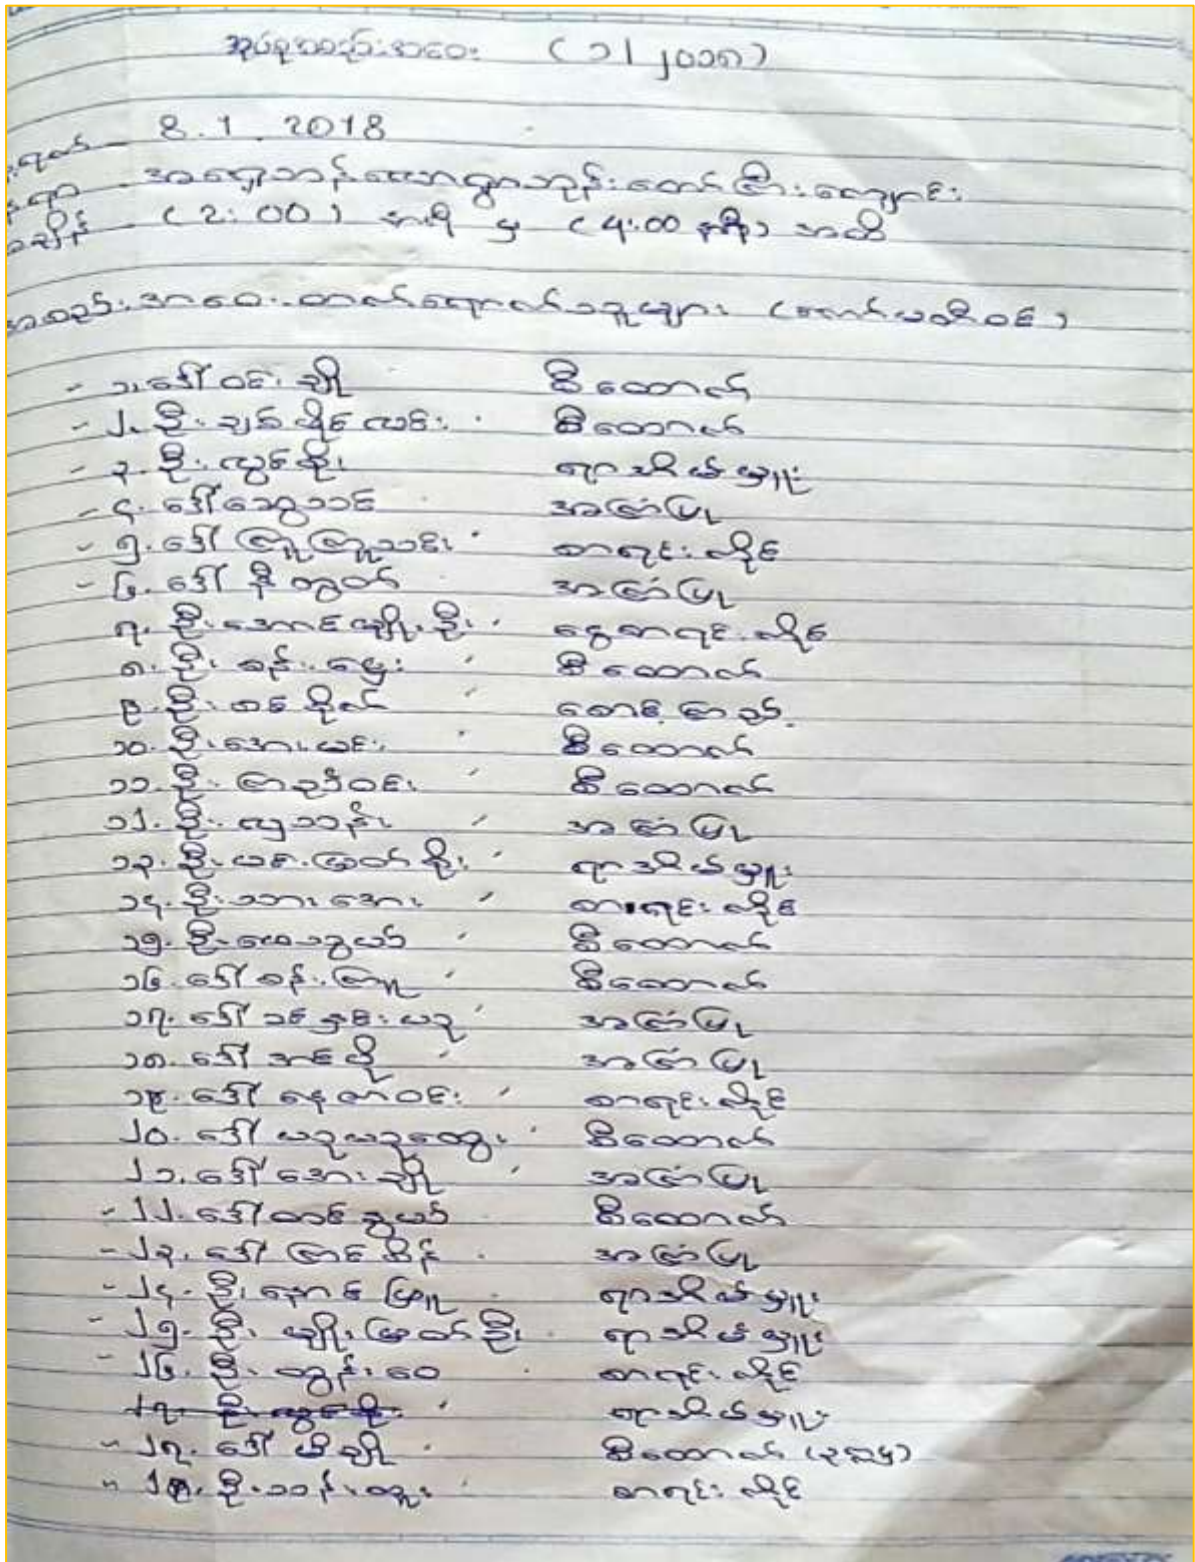 အုပ်စုအစည်းအဝေး (၁/၂၀၁၈)
8.1.2018
ဘုန်းတော်ကြီးကျောင်း
အချိန် - (2:00) နာရီ မှ (4:00 နာရီ) အထိ
အစည်းအဝေးတက်ရောက်သူများ (ကော်မတီဝင်)
- ၁. ဒေါ်ဝင်းချို စီထောက်
- ၂. ဦးချစ်ခိုင်လင်း စီထောက်
- ၃. ဦးလွင်စိုး ရာအိမ်မှူး
- ၄. ဒေါ်ဆွေသင် အကြံပြု
- ၅. ဒေါ်ကြူကြူသင်း စာရင်းကိုင်
- ၆. ဒေါ်နီတွတ် အကြံပြု
၇. ဦးအောင်မျိုးဦး ငွေစာရင်းကိုင်
၈. ဦးစန်းမွှေး စီထောက်
၉. ဦးတင်ဗိုလ် စောင့်ကြည့်
၁၀. ဦးအေးမင်း စီထောက်
၁၁. ဦးကြည်ဝင်း စီထောက်
၁၂. ဦးလှသန်း အကြံပြု
၁၃. ဦးမင်းမြတ်စိုး ရာအိမ်မှူး
၁၄. ဦးသားအေး စာရင်းကိုင်
၁၅. ဦးထေသွယ် စီထောက်
၁၆. ဒေါ်စန်းကြူ စီထောက်
၁၇. ဒေါ်သင်းနှင်းယု အကြံပြု
၁၈. ဒေါ်အင်ပို အကြံပြု
၁၉. ဒေါ်နေဇာဝင်း စာရင်းကိုင်
၂၀. ဒေါ်ယုယုထွေး စီထောက်
၂၁. ဒေါ်အေးချို အကြံပြု
- ၂၂. ဒေါ်တင်နွယ် စီထောက်
- ၂၃. ဒေါ်ကြင်စိန် အကြံပြု
- ၂၄. ဦးနောင်ဖြူ ရာအိမ်မှူး
- ၂၅. ဦးမျိုးမြတ်ဦး ရာအိမ်မှူး
- ၂၆. ဦးထွန်းဝေ စာရင်းကိုင်
၂၇. ဦးလွင်စိုး ရာအိမ်မှူး
- ၂၇. ဒေါ်မိချို စီထောက်
- ၂၈. ဦးသန်းထူး စာရင်းကိုင်